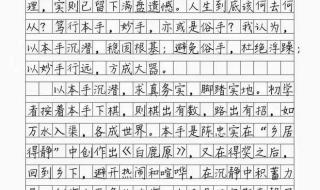 理，实则已留下满盘遗憾。人生到底该何去何
从？笃行本手，妙手，亦或是俗手？我认为，
以本手沉潜，稳固根基；避免俗手，杜绝浮躁；
以妙手行远，方成大器。
以本手沉潜，求真务实，脚踏实地。初学
者按着本手下棋，则棋出有数，路出有招，如
万水入渠，各成世界。本手是陈忠实在“乡居
得静”中创作出《白鹿原》，又在得奖之后，
回到乡下，避开热闹和喧哗，在沉静中积蓄力